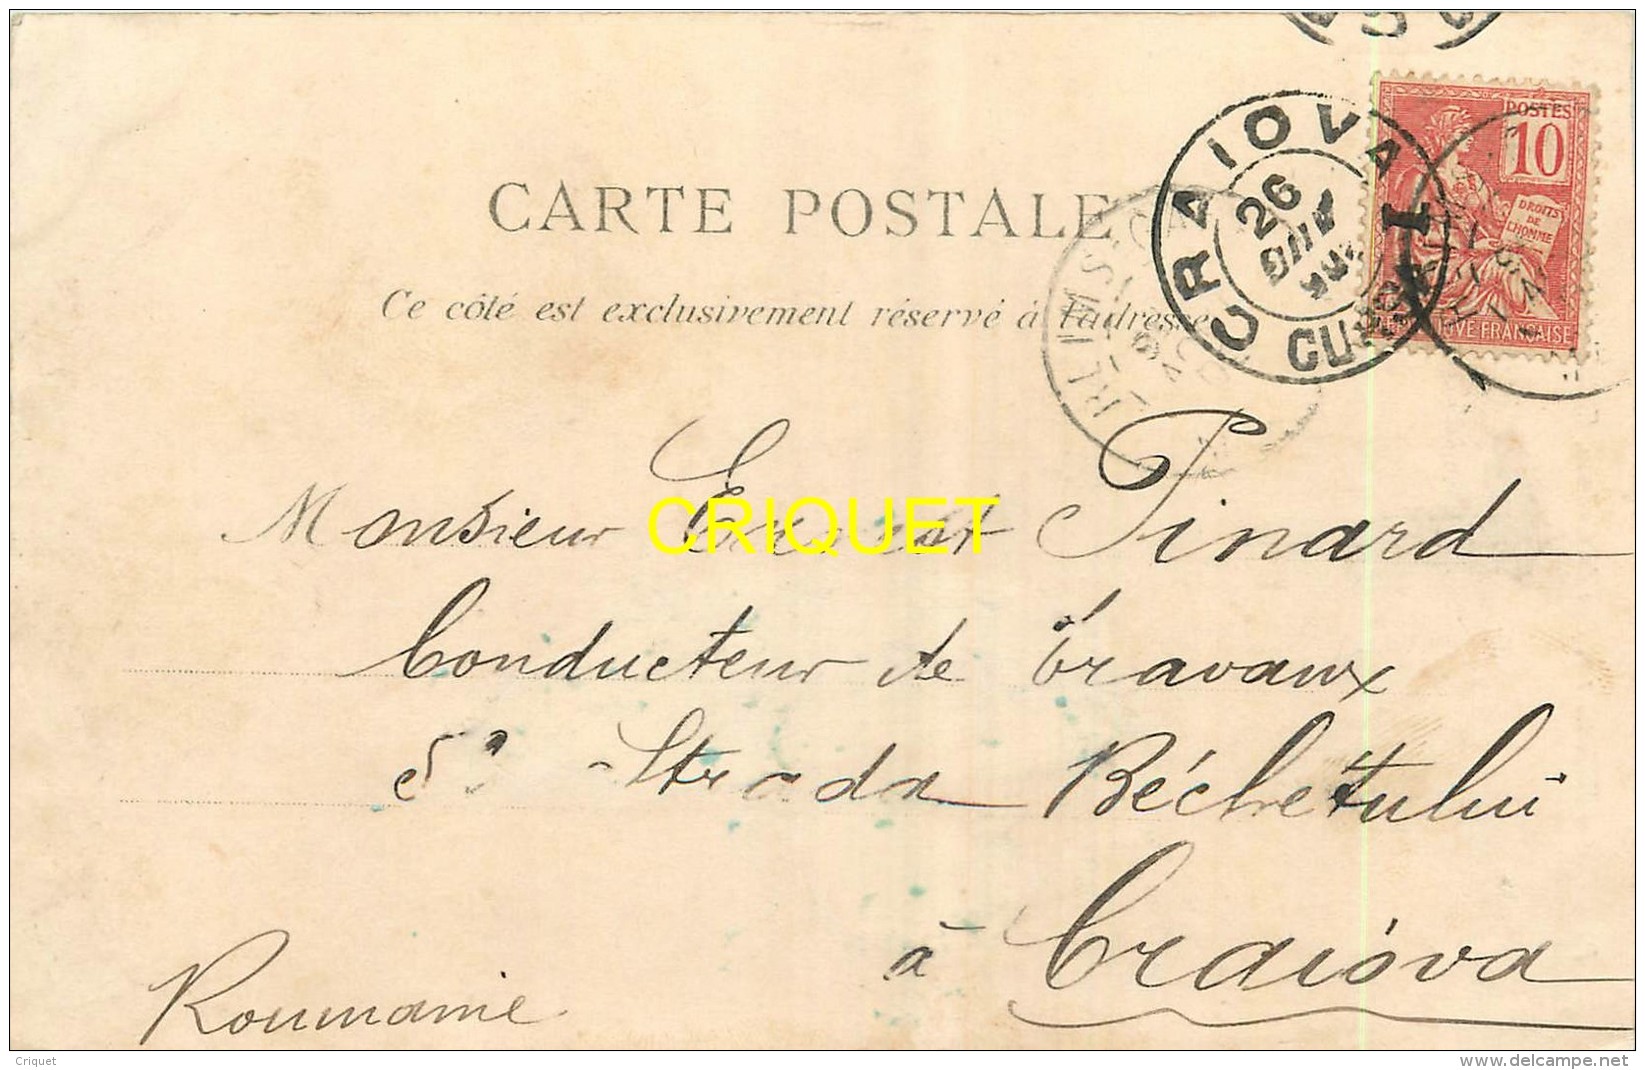 CARTE POSTALE
Ce côté est exclusivement réservé à l'adresse
CRAIOVA
26
CURSA I
POSTES
10
DROITS
DE
L'HOMME
FRANÇAISE
Monsieur Ernest Pinard
CRIQUET
Conducteur de Travaux
5 Strada Béchétului
à Craïova
Roumanie
Criquet
delcampe.net